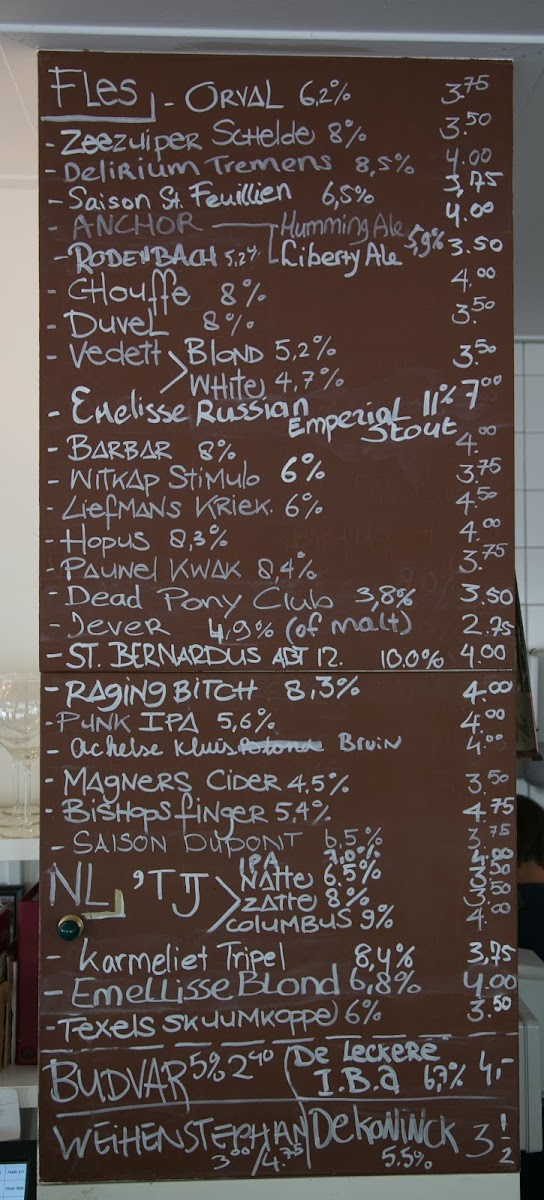 Fles - ORVAL 6,2% 3.75
- Zeezuiper Schelde 8% 3.50
- Delirium Tremens 8,5% 4.00
- Saison St. Feuillien 6,5% 3,75
- ANCHOR Humming Ale 5,9% 4.00
- RODENBACH 5,2% Liberty Ale 3.50
- CHouffe 8% 4.00
- DUVEL 8% 3.50
- Vedett BLOND 5,2% 3.50
White 4,7%
- Emelisse Russian 11% 7.00
Emperial Stout
- BARBAR 8% 4.00
- WITKAP STIMULO 6% 3.75
- LiefMANS KRIEK. 6% 4.50
- HOPUS 8,3% 4.00
- PAUWEL KWAK 8,4% 3.75
- Dead Pony Club 3,8% 3.50
- Jever 4,9% (of malt) 2.75
- ST. BERNARDUS ABT 12. 10.0% 4.00
- RAGING BITCH 8,3% 4.00
- PUNK IPA 5,6% 4.00
- achelse kluis Bruin 4.00
- MAGNERS CIDER 4.5% 3.50
- BISHOPS finger 5.4% 4.75
- SAISON DUPONT 6.5% 3.75
IPA 7.0% 4.00
NL, 'T IJ NATTE 6.5% 3.50
ZATTE 8% 3.50
COLUMBUS 9% 4.00
- Karmeliet Tripel 8,4% 3,75
- Emellisse Blond 6,8% 4.00
- Texels SKUUMKOPPE 6% 3.50
BUDVAR 5% 2.40 De Leckere
I.B.a 6,7% 4,-
WEIHENSTEPHAN DeKONINCK 3 1/2
3.00/4.75 5.5%